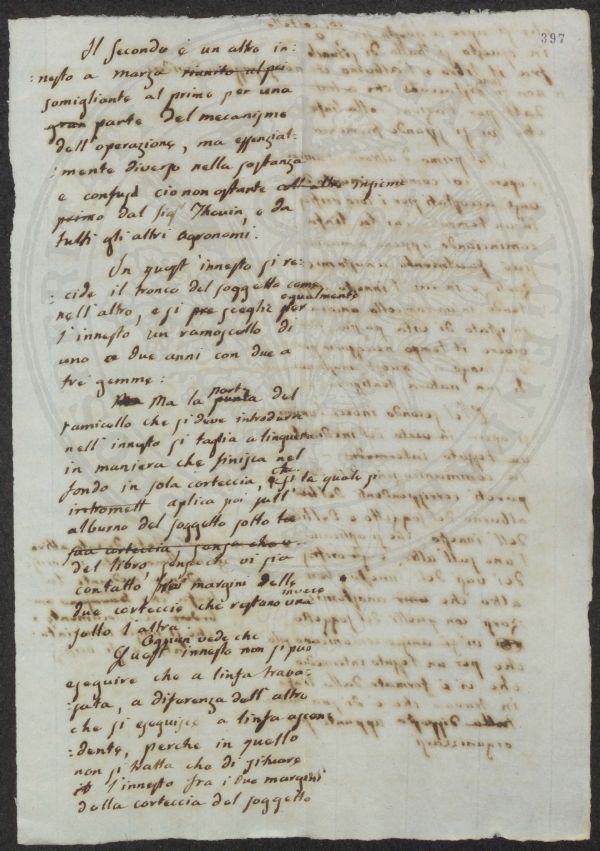 397
Il secondo è un altro in:
:nesto a marza riunito al poi
somigliante al primo per una
gran parte del mecanismo
dell'operazione, ma essenzial:
:mente diverso nella sostanza
e confuso ciò non ostante coll'altro insieme
primo dal Sig.r Thouin, e da
tutti gli altri agronomi.
In quest'innesto si re:
:cide il tronco del soggetto come
nell'altro, e si pre sceglie per egualmente
l'innesto un ramoscello di
uno o due anni con due a
tre gemme:
Ma la punta parte del
ramicello che si deve introdurre
nell'innesto si taglia a linguetta
in maniera che finisca nel
fondo in sola corteccia, la quale si
intromett aplica poi sull'
alburno del soggetto sotto la
sua corteccia, senza che
del libro senza che vi sia
contatto frai margini delle
due corteccie che restano una invece
sotto l'altra.
Ognun vede che
Quest'innesto non si può
eseguire che a linfa trava:
:sata, a diferenza dell'altro
che si eseguisce a linfa ascen:
:dente, perche in quello
non si tratta che di situare
l'innesto fra i due margini
della corteccia del soggetto